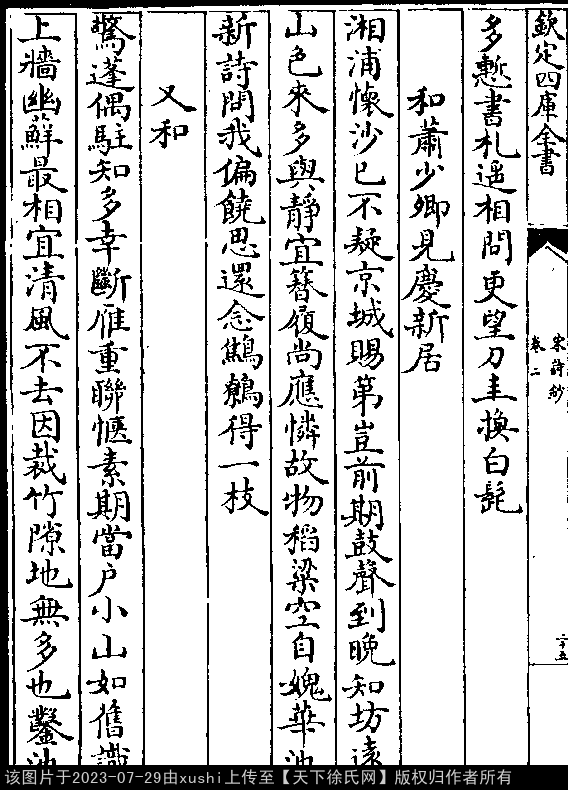 欽定四庫全書
宋詩鈔
卷二
二十五
多慙書札遥相問更望刀圭換白髭
和蕭少卿見慶新居
湘浦懐沙已不疑京城賜第豈前期鼓聲到晚知坊逺
山色來多與靜宜簪履尚應憐故物稻粱空自媿華池
新詩問我偏饒思還念鷦鷯得一枝
又和
驚蓬偶駐知多幸斷雁重聯愜素期當户小山如舊識
上牆幽蘚最相宜清風不去因栽竹隙地無多也鑿池
该图片于2023-07-29由xushi上传至【天下徐氏网】版权归作者所有